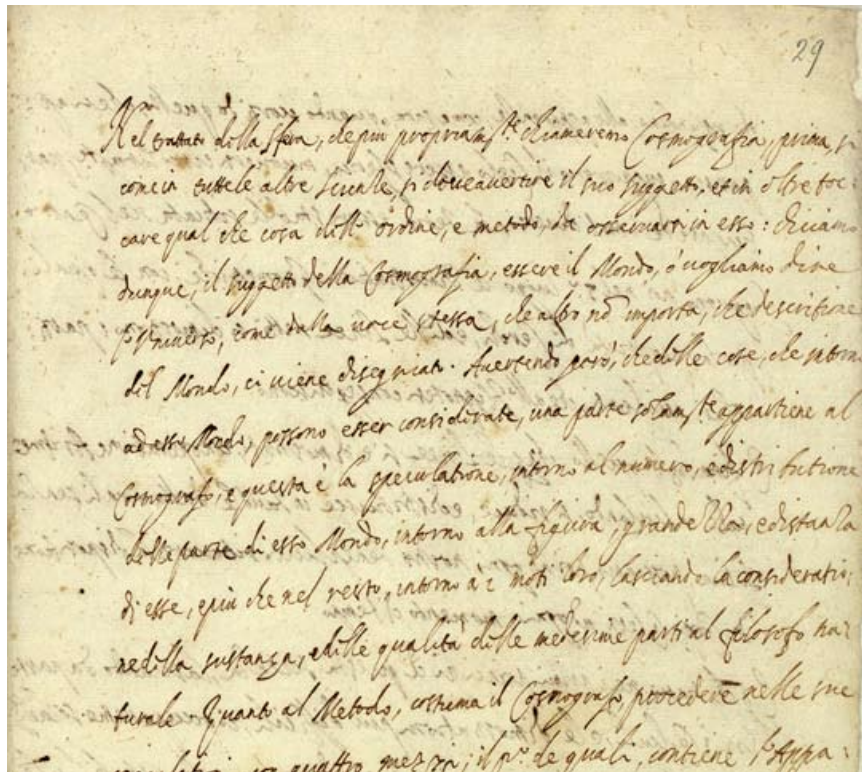 29
Nel trattato della Sfera, che più propriam.te chiameremo Cosmografia, prima, si
come in tutte le altre scienze, si deve avertire il suo suggetto, et in oltre toc-
care qual che cosa dell' ordine, e metodo, da osservarsi in esso: diciamo
dunque, il suggetto della Cosmografia, essere il Mondo, ò vogliamo dire
l'Universo, come dalla voce stessa, che altro nō importa, che descritione
del Mondo, ci viene disegniato. Avertendo però, che delle cose, che intorno
ad esso Mondo, possono esser considerate, una parte solam.te appartiene al
Cosmografo, e questa è la speculatione, intorno al numero, e distributione
delle parte di esso Mondo, intorno alla figura, grandezza, e distanza
di esse, e più che nel resto, intorno a i moti loro, lasciando la consideratio:
ne della sustanza, e delle qualità delle medesime parti al filosofo na:
turale Quanto al Metodo, costuma il Cosmografo, procedere nelle sue
quattro mezzi; il p.o de quali, contiene l'Appa: